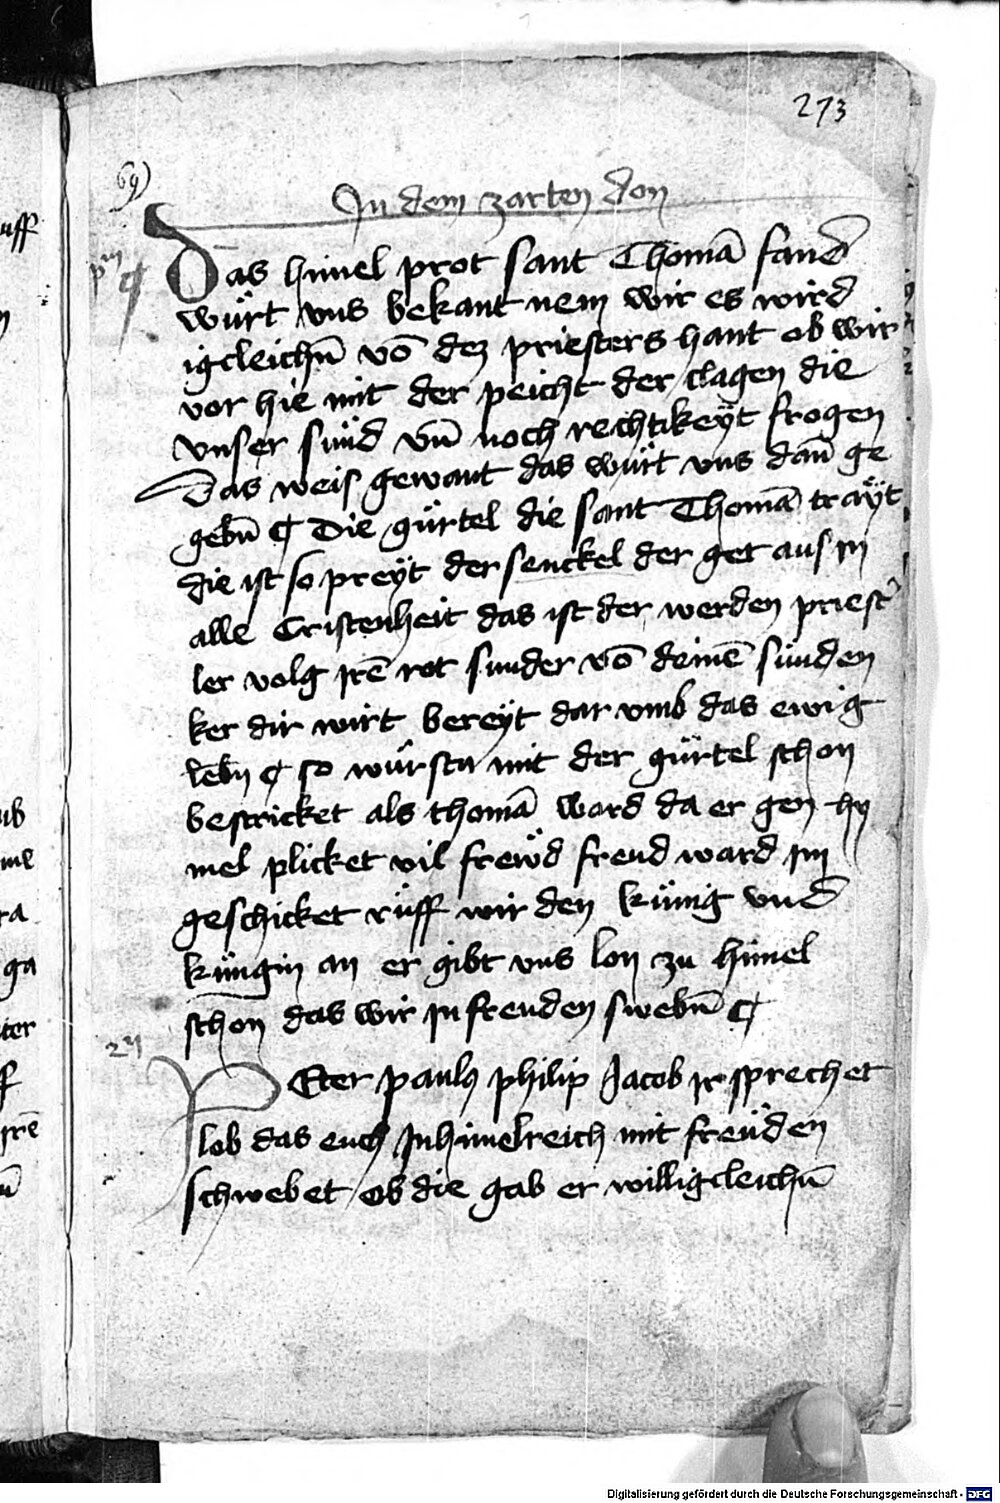 273
69)
In dem zarten don
pm
Das himel prot sant Thomā fand
würt vns bekant nem wir es wird
igcleichn̄ vō dez priesters hant ob wir
vor hie mit der peicht der clagen die
vnser sünd vn̄ noch rechtikeyt frogen
Das weis gewant das würt vns dan̄ ge
gebn̄ ¶ Die gürtel die sant Thomā trayt
die ist so preyt der senckel der get aus in
alle Cristenheit das ist der werden priest
ler volg irē rot sunder vō deinē sünden
ker dir wirt bereyt dar vmb das ewig
lebn̄ ¶ so würstu mit der gürtel schon
bestricket als thomā ward da er gen hy
mel plicket vil frewd frend ward im
geschicket rüff wir den künig vnd
küngin an er gibt vns lon zu himel
schon das wir in freuden swebn̄ ¶
2m
PEter paulus philip Jacob ir sprechet
lob das euch In himelreich mit freüden
schwebet ob die gab er willigcleichn̄
uff
ub
me
ra
ga
ter
ff
irē
Digitalisierung gefördert durch die Deutsche Forschungsgemeinschaft - DFG